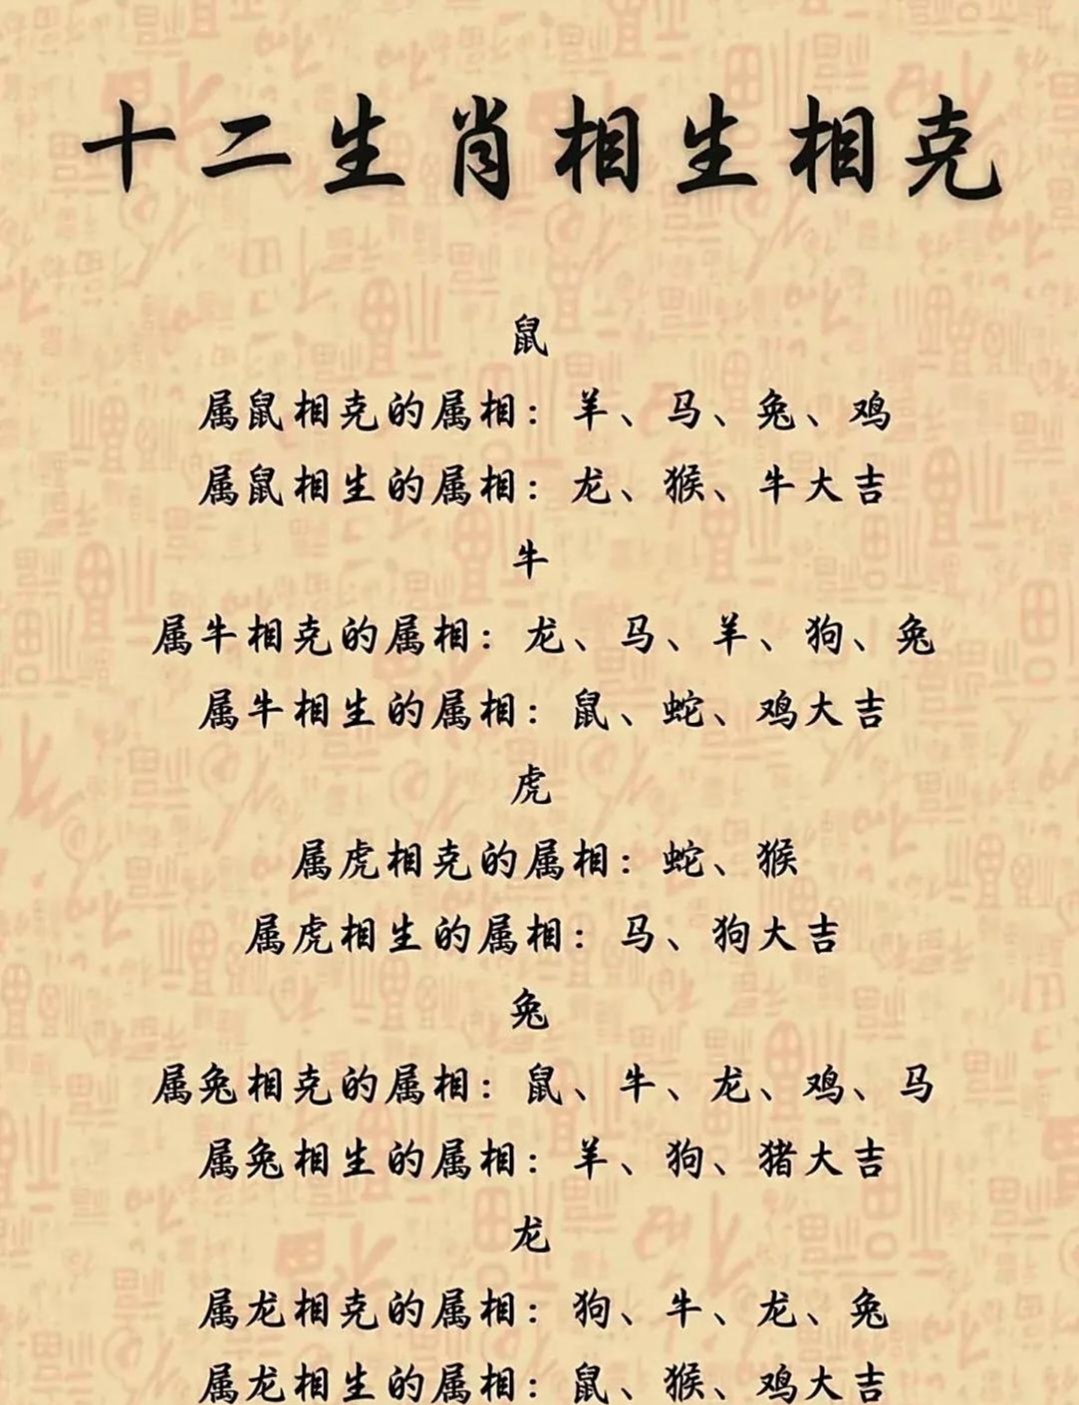 十二生肖相生相克
鼠
属鼠相克的属相：羊、马、兔、鸡
属鼠相生的属相：龙、猴、牛大吉
牛
属牛相克的属相：龙、马、羊、狗、兔
属牛相生的属相：鼠、蛇、鸡大吉
虎
属虎相克的属相：蛇、猴
属虎相生的属相：马、狗大吉
兔
属兔相克的属相：鼠、牛、龙、鸡、马
属兔相生的属相：羊、狗、猪大吉
龙
属龙相克的属相：狗、牛、龙、兔
属龙相生的属相：鼠、猴、鸡大吉